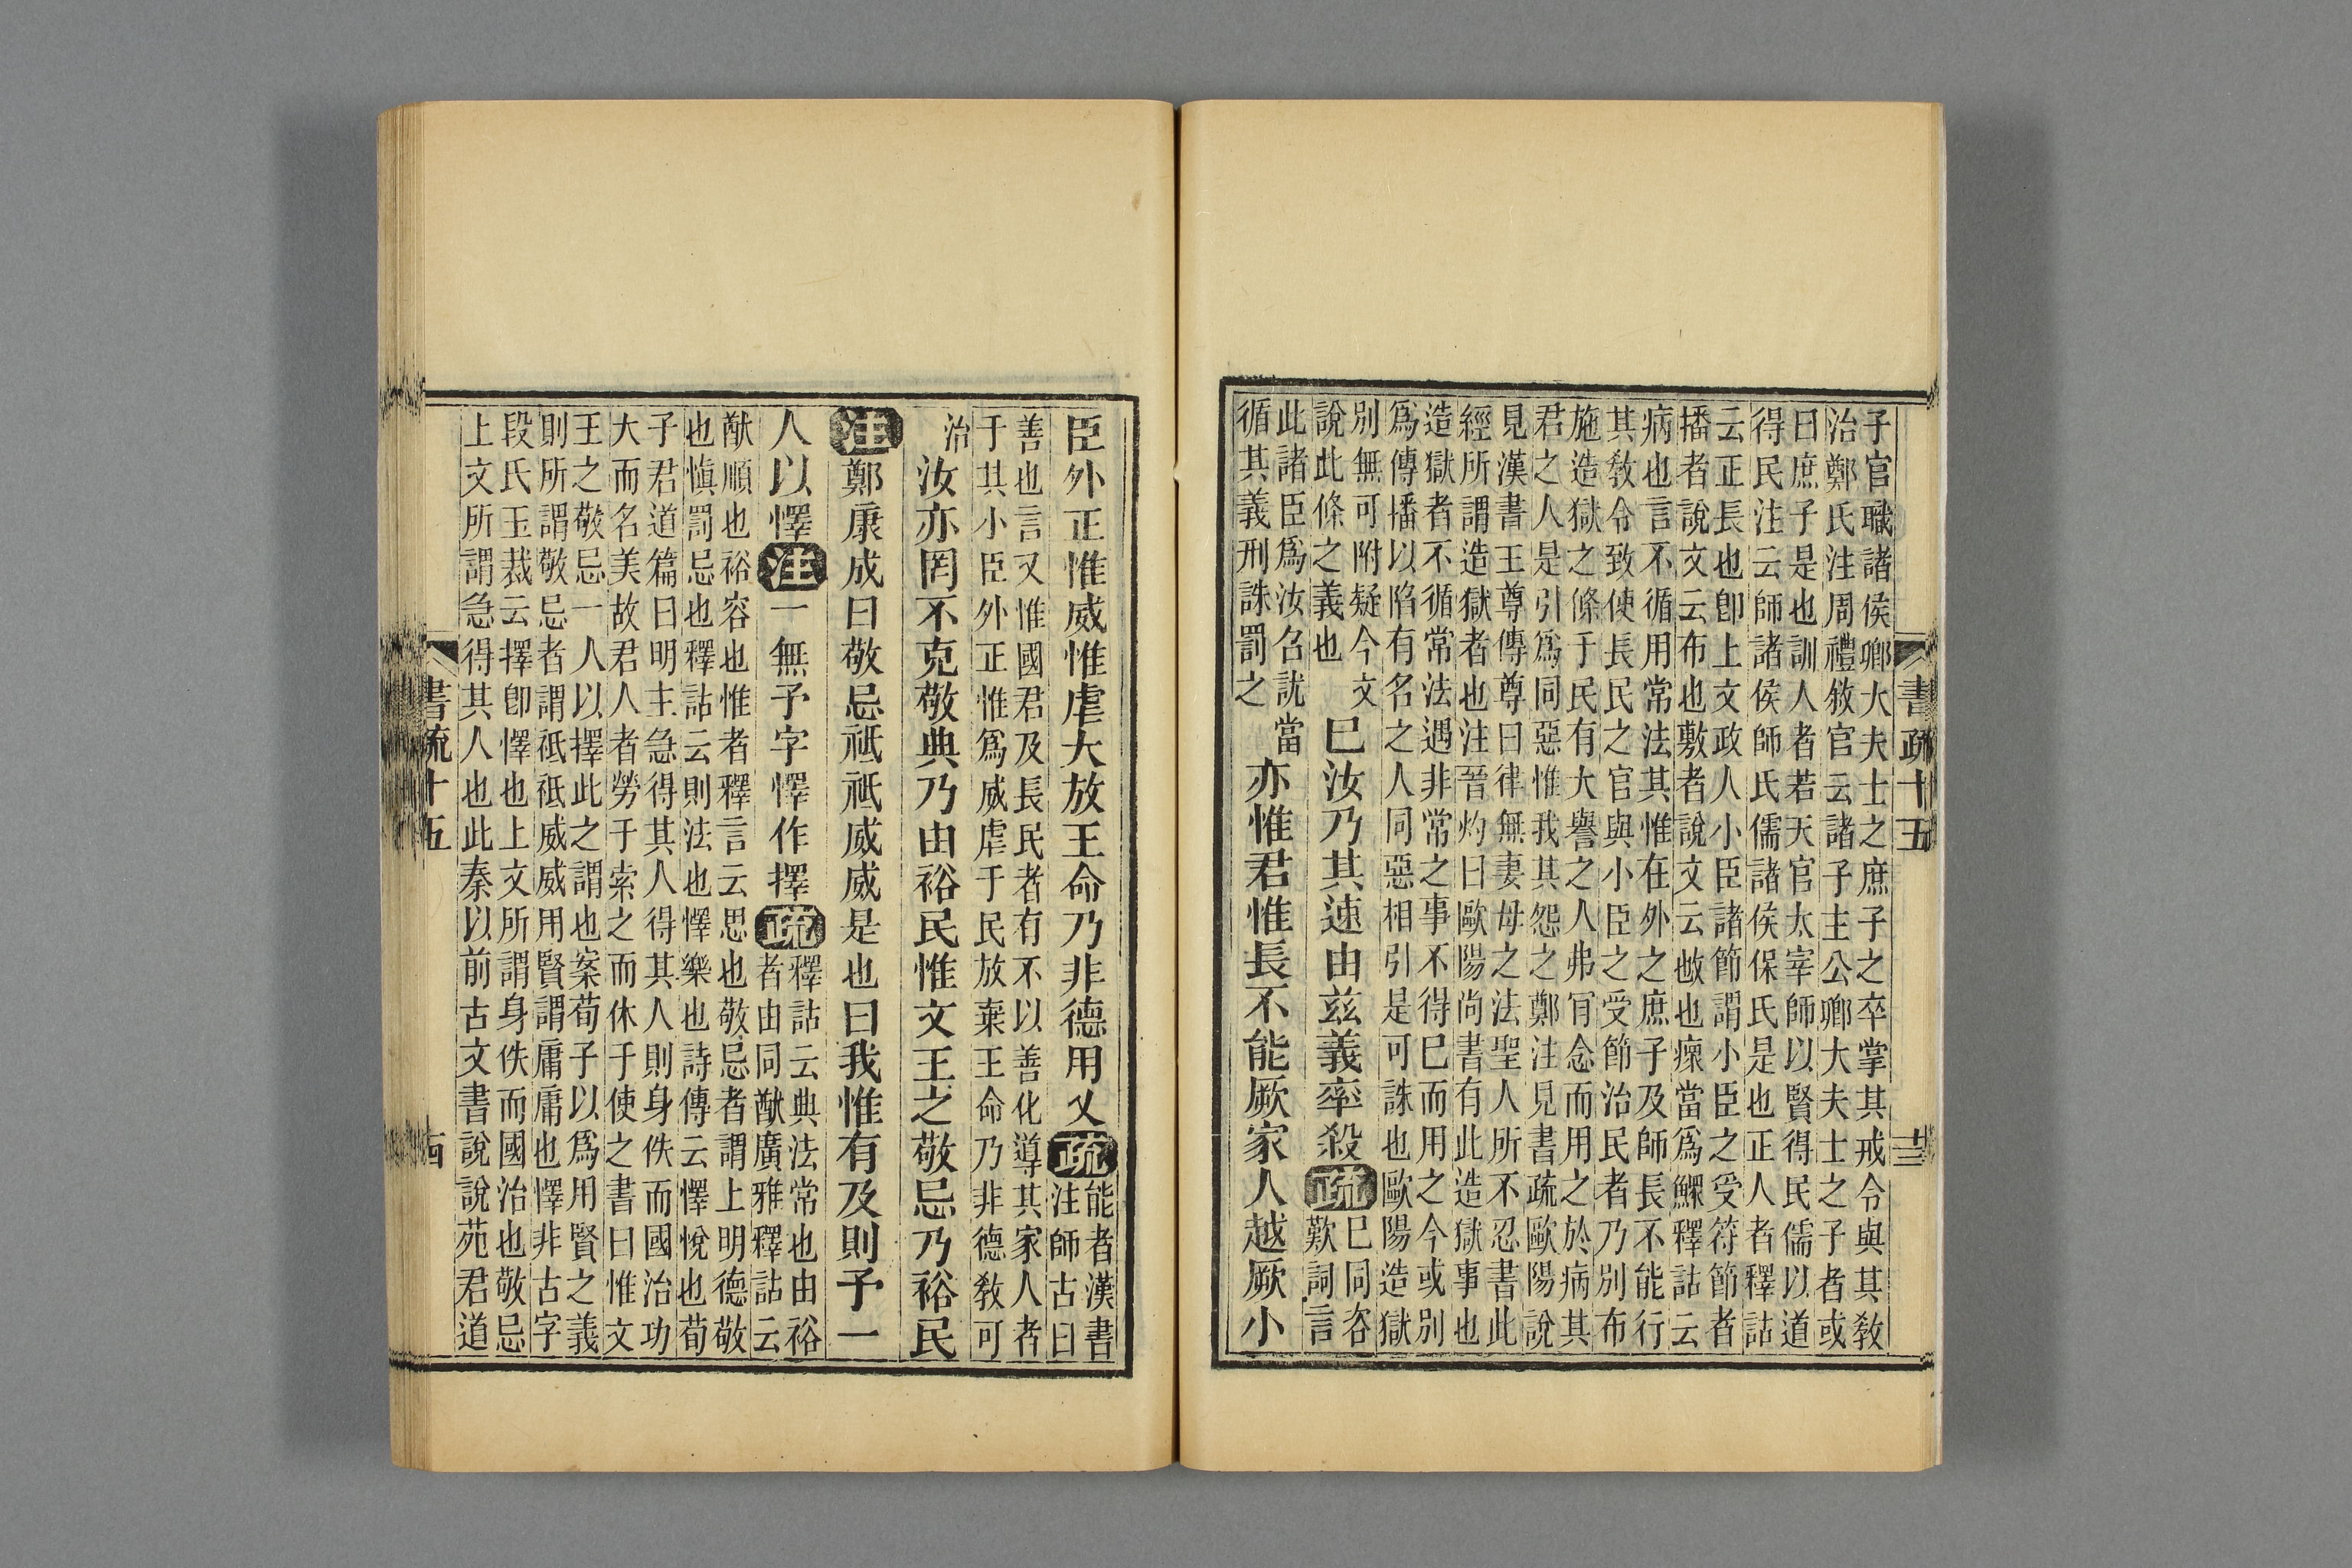 書疏十五
十三
子官職諸侯卿大夫士之庶子之卒掌其戒令與其敎
治鄭氏注周禮敘官云諸子主公卿大夫士之子者或
曰庶子是也訓人者若天官太宰師以賢得民儒以道
得民注云師諸侯師氏儒諸侯保氏是也正人者釋詁
云正長也卽上文政人小臣諸節謂小臣之受符節者
播者說文云布也敷者說文云㪺也瘝當爲鰥釋詁云
病也言不循用常法其惟在外之庶子及師長不能行
其敎令致使長民之官與小臣之受節治民者乃別布
施造獄之條于民有大譽之人弗肎念而用之於病其
君之人是引爲同惡惟我其怨之鄭注見書疏歐陽說
見漢書王尊傳尊曰律無妻母之法聖人所不忍書此
經所謂造獄者也注晉灼曰歐陽尚書有此造獄事也
造獄者不循常法遇非常之事不得巳而用之今或別
爲傳播以陷有名之人同惡相引是可誅也歐陽造獄
別無可附疑今文
說此條之義也
巳汝乃其速由兹義率殺疏
巳同咨
歎詞言
此諸臣爲汝名訧當
循其義刑誅罰之
亦惟君惟長不能厥家人越厥小
臣外正惟威惟虐大放王命乃非德用乂疏
能者漢書
注師古曰
善也言又惟國君及長民者有不以善化導其家人者
于其小臣外正惟爲威虐于民放棄王命乃非德敎可
治
汝亦罔不克敬典乃由裕民惟文王之敬忌乃裕民
注鄭康成曰敬忌祗祗威威是也曰我惟有及則予一
人以懌注一無予字懌作擇疏
釋詁云典法常也由裕
者由同猷廣雅釋詁云
猷順也裕容也惟者釋言云思也敬忌者謂上明德敬
也愼罰忌也釋詁云則法也懌樂也詩傳云懌悅也荀
子君道篇曰明主急得其人得其人則身佚而國治功
大而名美故君人者勞于索之而休于使之書曰惟文
王之敬忌一人以擇此之謂也案荀子以爲用賢之義
則所謂敬忌者謂祗祗威威用賢謂庸庸也懌非古字
段氏玉裁云擇卽懌也上文所謂身佚而國治也敬忌
上文所謂急得其人也此秦以前古文書說說苑君道
書疏十五